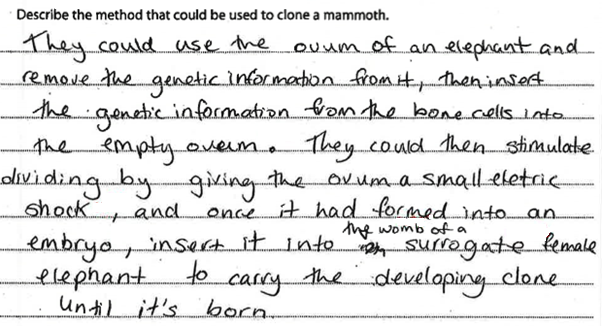 Describe the method that could be used to clone a mammoth.
They could use the ovum of an elephant and
remove the genetic information from it, then insert
the genetic information from the bone cells into
the empty oveum. They could then stimulate
dividing by giving the ovum a small eletric
shock, and once it had formed into an
embryo, insert it into the womb of a surrogate female
elephant to carry the developing clone
until it's born.